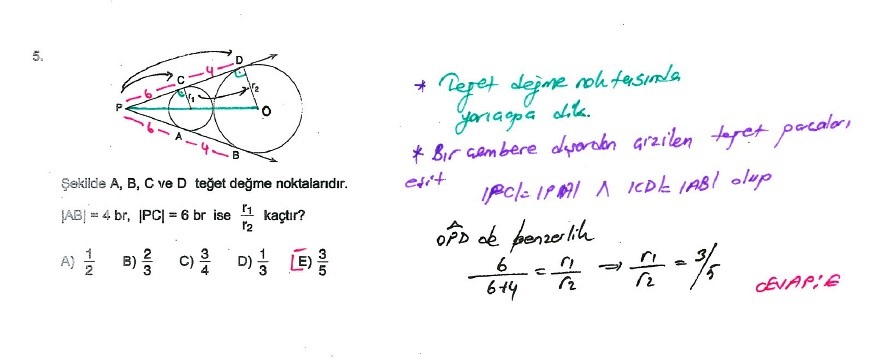 5.
D
C
4
6
r₂
r₁
P
O
6
A
4
B
Şekilde A, B, C ve D teğet değme noktalarıdır.
|AB| = 4 br, |PC| = 6 br ise r₁/r₂ kaçtır?
A) 1/2 B) 2/3 C) 3/4 D) 1/3 E) 3/5
* Teğet değme noktasında
yarıçapa dik.
* Bir çembere dışarıdan çizilen teğet parçaları
eşit |PC|=|PA| ∧ |CD|=|AB| olup
OPD de benzerlik
6/(6+4) = r₁/r₂ ⇒ r₁/r₂ = 3/5
CEVAP: E